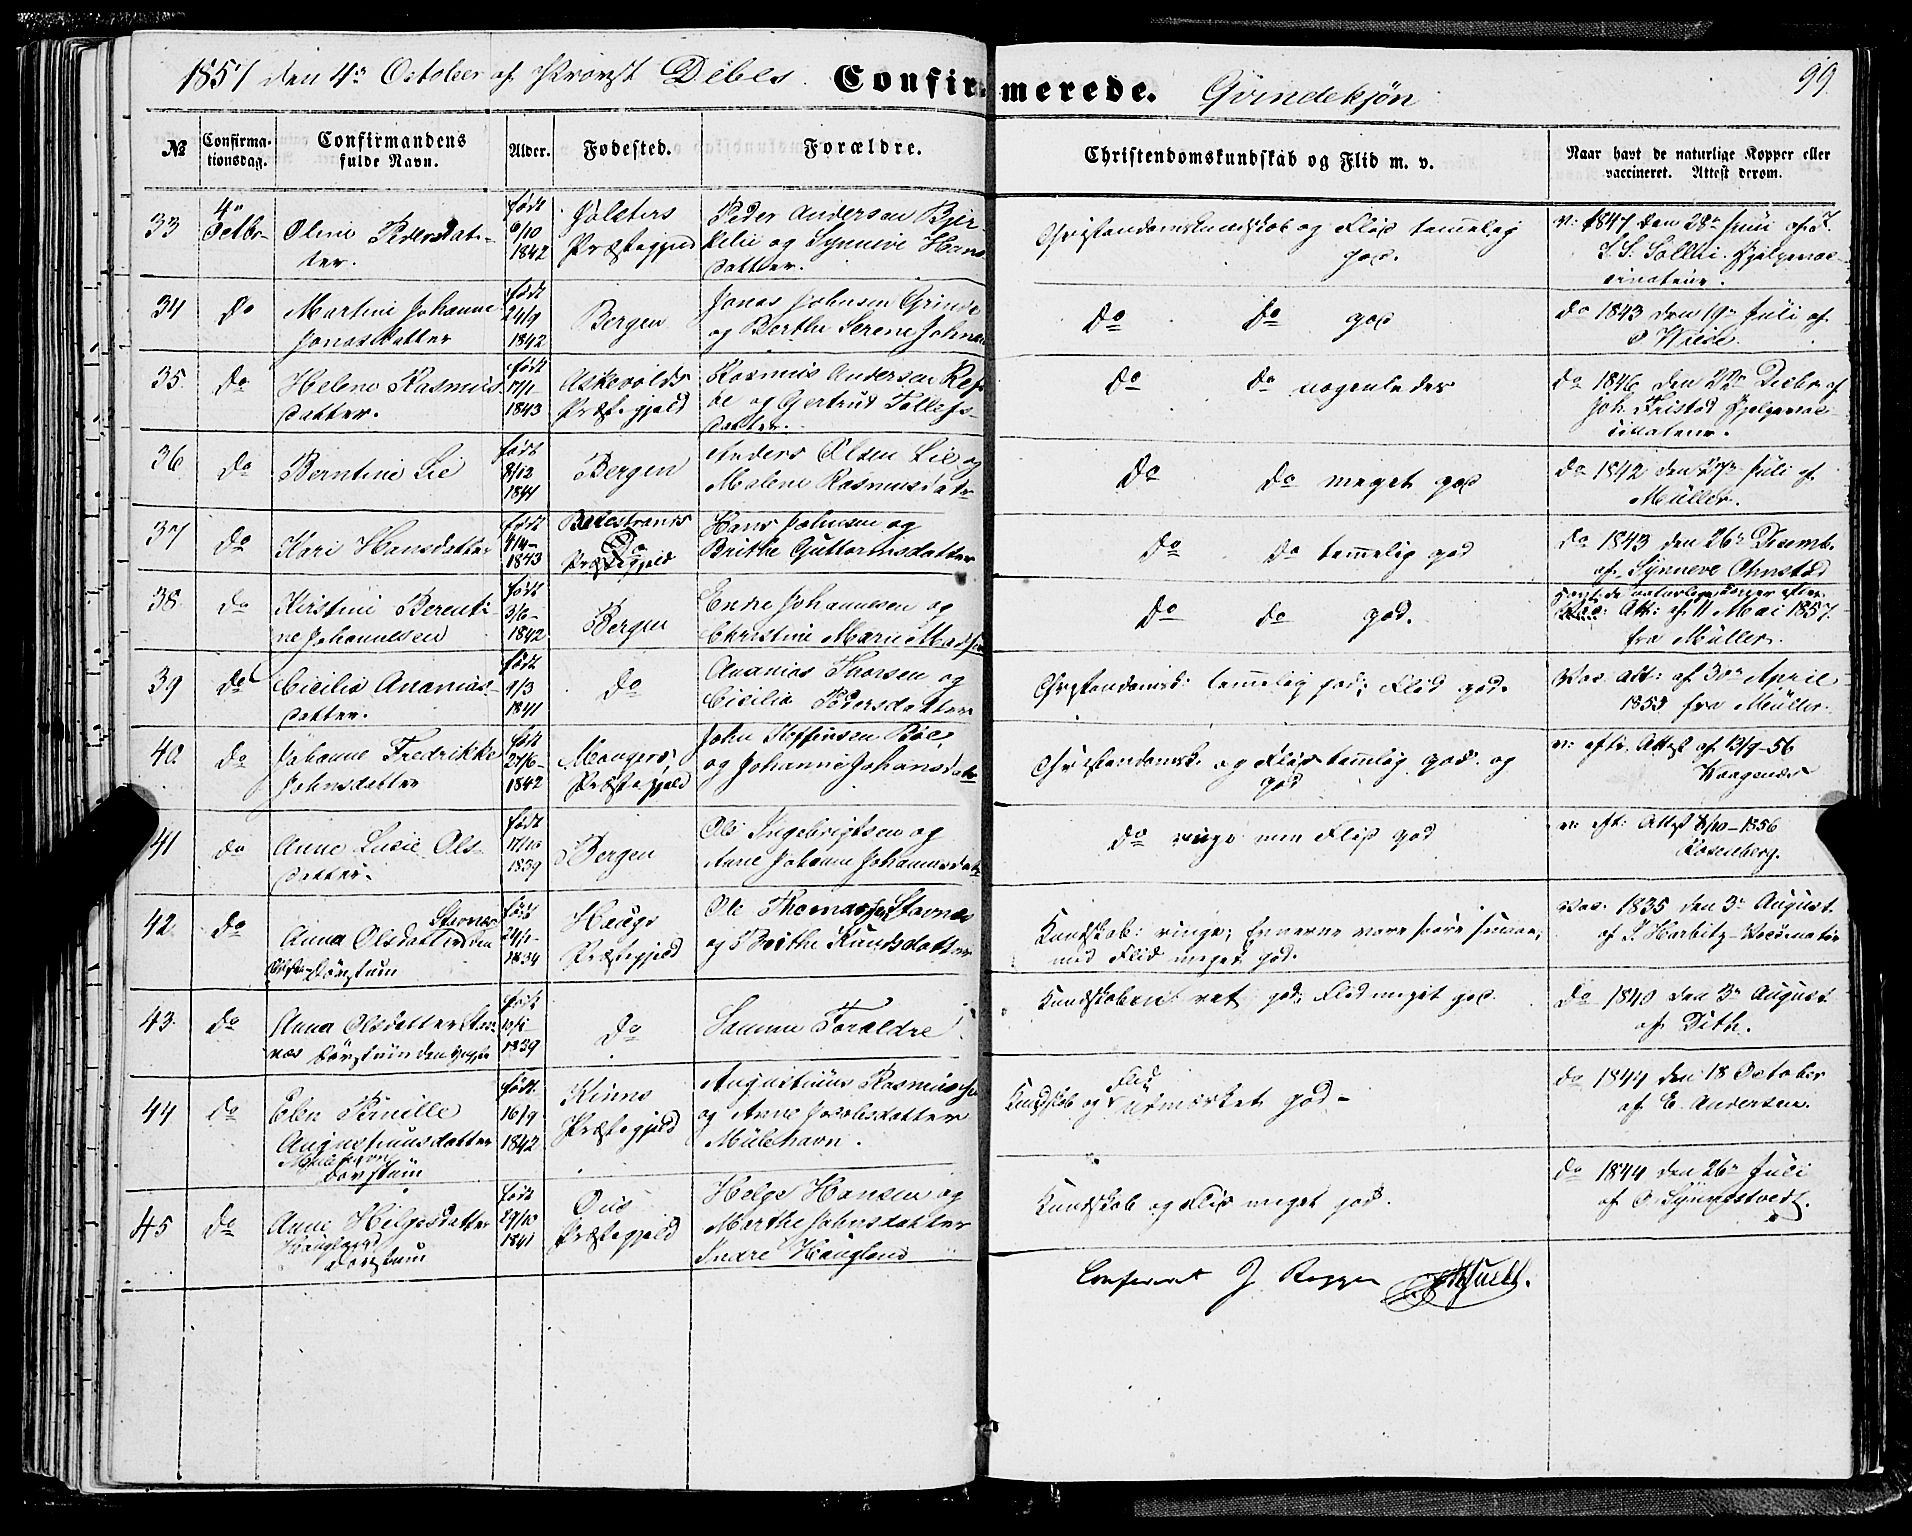 1857 den 4de October af Provst Debes. Confirmerede. Qvindekjøn
99
№
Confirma-
tionsdag.
Confirmandens
fulde Navn.
Alder.
Fødested.
Forældre.
Christendomskundskab og Flid m. v.
Naar havt de naturlige Kopper eller
vaccineret. Attest derom.
33
4de
Octbr
Oline Pedersdat-
ter.
født
6/10
1842
Jølsters
Præstegjeld
Peder Andersen Bjer
kelie og Synneve Hans
datter.
Christendomskundskab og Flid temmelig
god.
v: 1847 den 28de Juni af J.
S. S. Sollie. Hjelpevac-
cinateur.
34
do
Martine Johanne
Jonasdatter
født
24/9
1842
Bergen
Jonas Johnsen Grinde
og Berthe Serene Johnsd
do do god
do 1843 den 19de Juli af
Wiese.
35.
do
Helene Rasmus
datter.
født
17/1
1843
Askevolds
Præstegjeld
Rasmus Andersen
og Gertrud Tollefs-
datter.
do do nogenledes
do 1846 den 22de Decbr af
Joh. Fristad Hjelpevac-
cinateur.
36
do
Berntine Lie
født
8/12
1841
Bergen
Anders Olsen Lie og
Malene Rasmusdatr
do do meget god
do 1842 den 27de Juli af
Müller.
37
do
Kari Hansdatter
født
1843
Balestrands
do
Præstegjeld
Hans Johnsen og
Brithe Guttormsdatter
do do temmelig god
do 1843 den 26de Desemb.
af Synneve Ohnstad
38.
do
Kirstine Berenti-
ne Johannesen
født
3/6
1842
Bergen
Enne Johannesen og
Christine Marie Madsen
do do god.
havt de naturlige Kopper efter
Att: af 11 Mai 1857.
fra Müller.
39
do
Cicilia Ananias-
datter.
født
1/3
1841
do
Ananias Thorsen og
Cicilia Pedersdatter
Christendomsk: temmelig god; Flid god.
Vac. Att: af 30de April
1853 fra Müller.
40.
do
Johanne Fredrikke
Johnsdatter
født
27/6
1842
Mangers
Præstegjeld
John Steffensen Bøe
og Johanne Johansdatr
Christendomsk. og Flid temmelig god. og
god
v: eftr. Attest af 13/9-56
Kaagenæs
41
do
Anne Lucie Ols
datter.
født
17/10
1839
Bergen
Ole Ingebrigtsen og
Anne Johanne Johannesdatr
do ringe men Flid god
v: eft: Attest 8/10-1856
Rosenberg.
42.
do
Stavnæs
Anna Olsdatter den
døvstum
født
24/1
1834
Haugs
Præstegjeld
Ole Thomassen Stavnæs
og Brithe Knudsdatter
Kundskab: ringe; Evnerne vare
med Flid meget god.
Vac. 1835 den 3de August
af J. Harbitz-Vaccinatør
43.
do
Anna Olsdatter Stav-
næs Døvstum den yngste
født
1839
do
Samme Foreldre
Kundskaben ret god; Flid meget god.
do 1840 den 3de August
af Dith.
44
do
Elen Pernille
Augustinusdatter
Mülehavn
Døvstum
født
16/9
1842
Kinns
Præstegjeld
Augustinus Rasmussen
og Anne Jacobsdatter
Mülehavn.
Flid
Kundskab og udmærket god-
do 1844 den 18 October
af E. Andersen.
45
do
Anne Helgesdatter
Haugland
Døvstum
født
29/10
1841
Ous
Præstegjeld
Helge Hansen og
Marthe Johnsdatter
Indre Haugland
Kundskab og Flid meget god.
do 1844 den 26de Juli
af O. Synnestvedt.
Conferent J. Rogge